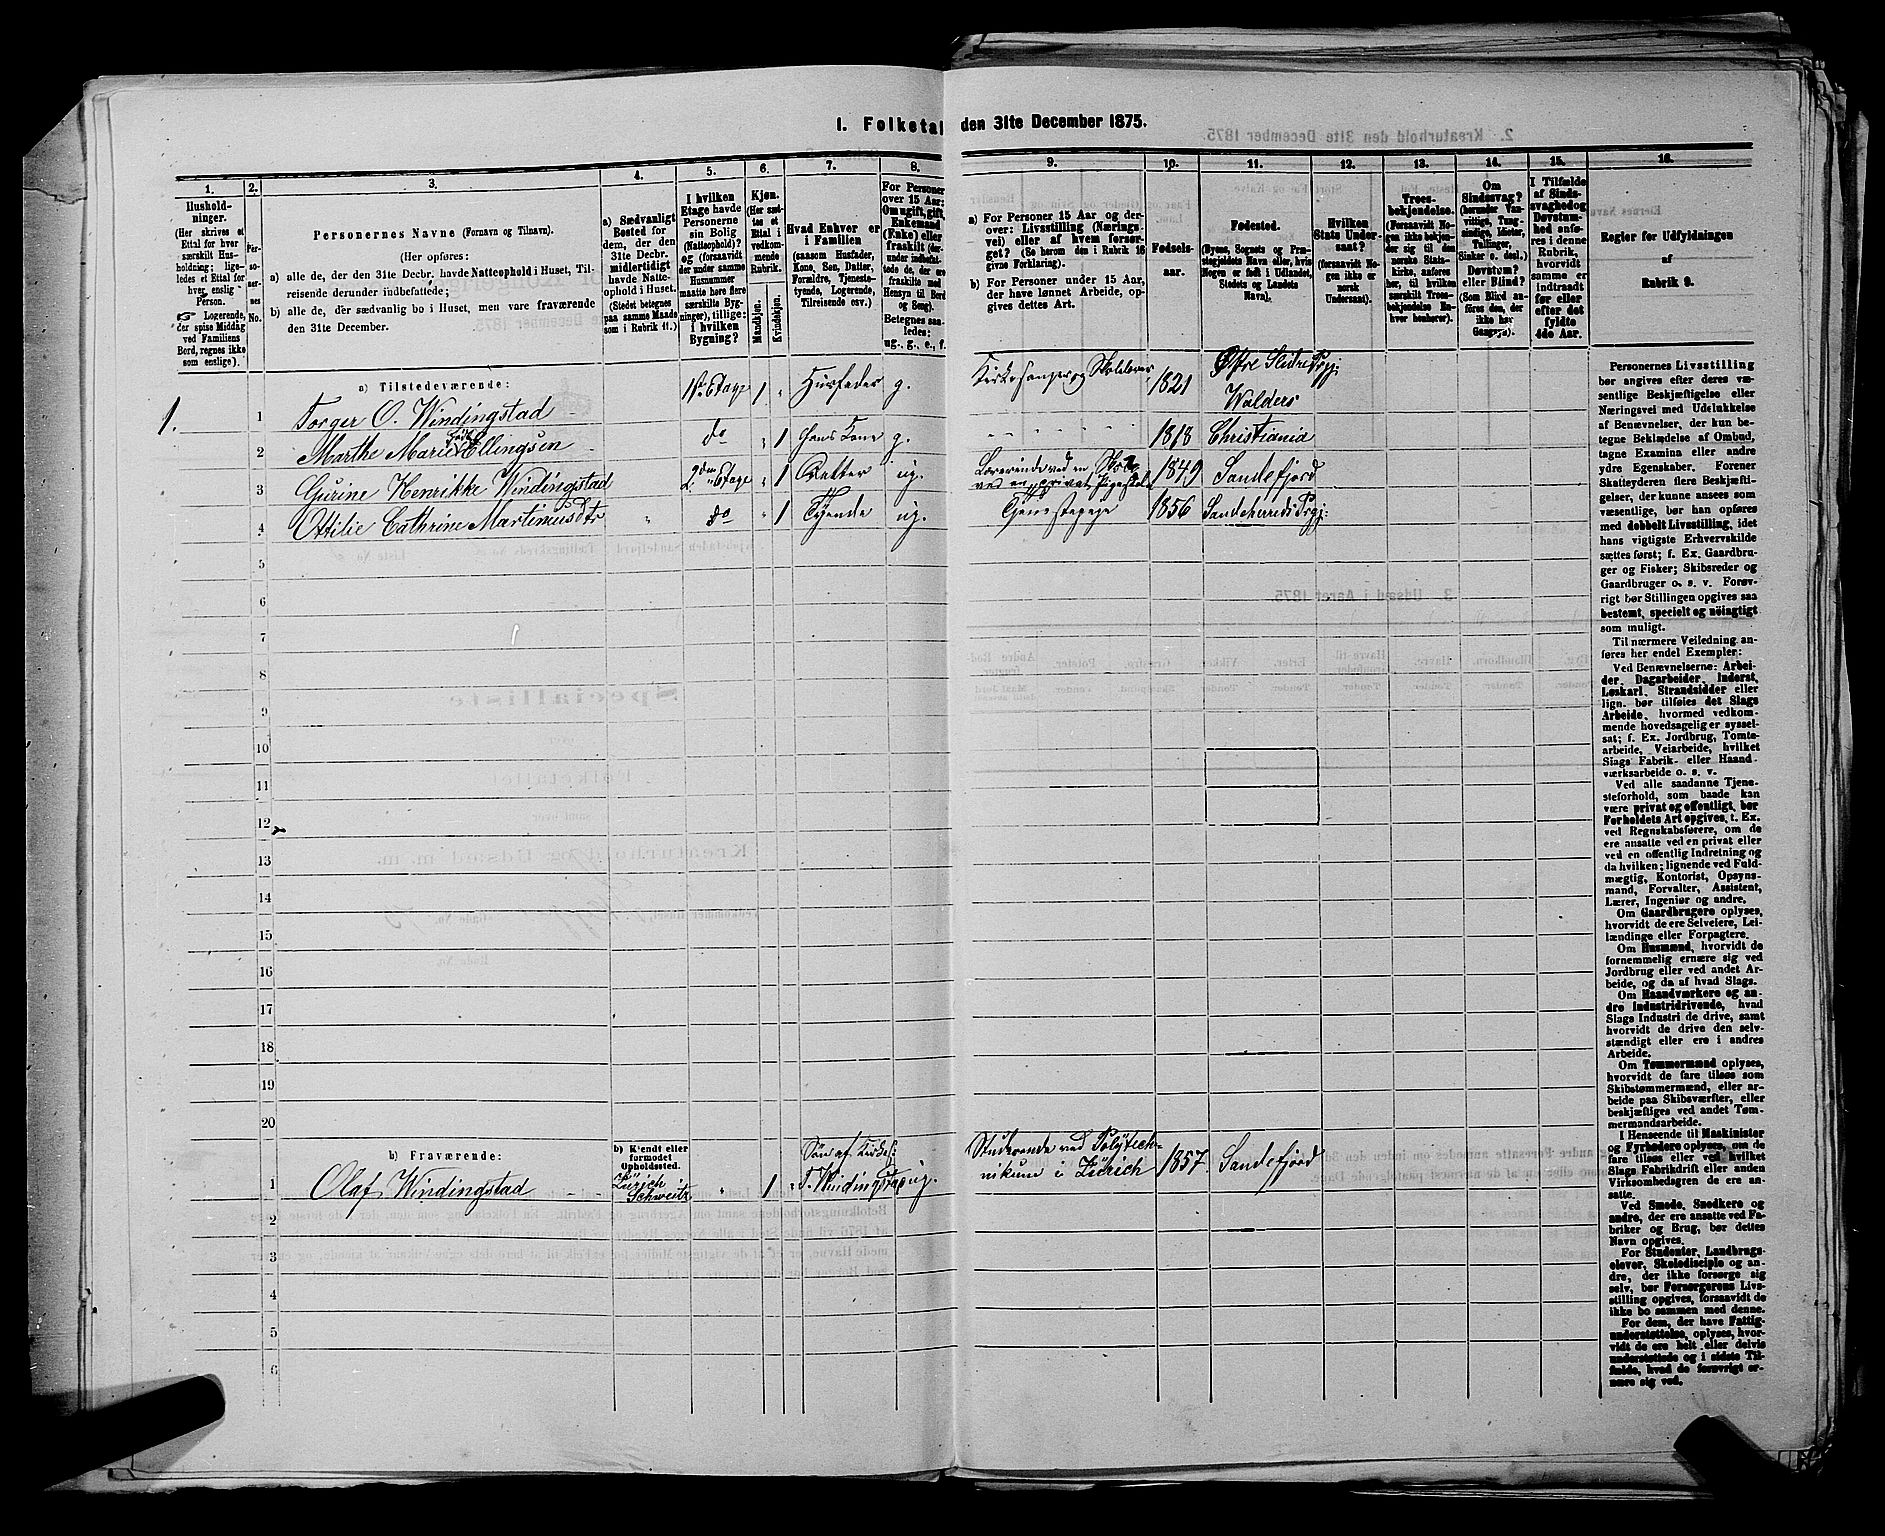 1. Folketal den 31te December 1875.
1. 2. 3. 4. 5. 6. 7. 8. 9. 10. 11. 12. 13. 14. 15. 16.
Hushold-
ninger.
(Her skrives et
Ettal for hver
særskilt Hus-
holdning; lige-
ledes et Ettal for
hver enslig
Person.
Logerende,
der spise Middag
ved Familiens
Bord, regnes ikke
som enslige).
Per-
so-
ner-
nes
No.
Personernes Navne (Fornavn og Tilnavn).
(Her opføres:
a) alle de, der den 31te Decbr. havde Natteophold i Huset, Til-
reisende derunder indbefattede;
b) alle de, der sædvanlig bo i Huset, men vare fraværende
den 31te December.
a) Sædvanligt
Bosted for
dem, der den
31te Decbr.
midlertidigt
havde Natte-
ophold i Huset.
(Stedet betegnes
paa samme Maade
som i Rubrik 11.)
I hvilken
Etage havde
Personerne
sin Bolig
(Natteophold)?
og (forsaavidt
der under samme
Husnummer
maatte høre flere
særskilte Byg-
ninger), tillige:
i hvilken
Bygning?
Kjøn.
(Her sæt-
tes et
Ettal i
vedkom-
mende
Rubrik.
Mandkjøn.
Kvindekjøn.
Hvad Enhver er
i Familien
(saasom Husfader,
Kone, Søn, Datter,
Forældre, Tjeneste-
tyende, Logerende,
Tilreisende osv.)
For Personer
over 15 Aar:
Om ugift, gift,
Enkemand
(Enke) eller
fraskilt (der-
under indbefat-
tede de, der ere
fraskilte med
Hensyn til Bord
og Seng).
Betegnes saa-
ledes:
ug., g., e., f.
a) For Personer 15 Aar og der-
over: Livsstilling (Nærings-
vei) eller af hvem forsør-
get? (Se herom den i Rubrik 16
givne Forklaring).
b) For Personer under 15 Aar,
der have lønnet Arbeide, op-
gives dettes Art.
Fødsels-
aar.
Fødested.
(Byens, Sognets og Præ-
stegjeldets Navn eller, hvis
Nogen er født i Udlandet,
Stedets og Landets
Navn).
Hvilken
Stats Under-
saat?
(forsaavidt No-
gen ikke er
norsk
Undersaat).
Troes-
bekjendelse.
(Forsaavidt No-
gen ikke bekjen-
der sig til den
norske Stats-
kirke, anføres
her, til hvilken
særskilt Troes-
bekjendelse En-
hver henhører).
Om
Sindssvag?
(herunder Van-
vittige, Tung-
sindige, Idioter,
Tullinger,
Sinker o. desl.).
Døvstum?
eller Blind?
(Som Blind an-
føres den, der
ikke har
Gangsyn).
I Tilfælde
af Sinds-
svaghed og
Døvstum-
hed anfø-
res i denne
Rubrik,
hvorvidt
samme er
indtraadt
før eller
efter det
fyldte
4de Aar.
Regler for Udfyldningen
af
Rubrik 9.
a) Tilstedeværende:
1. 1 Torger O. Windingstad 1ste Etage 1 Husfader g. Kirkesanger og Skolelærer 1821 Østre Slidre Prgj: Walders
2 Marthe Marie født Ellingsen do 1 hans Kone g. 1818 Christiania
3 Gurine Henrikke Windingstad 2den Etage 1 Datter ug. Lærerinde ved en privat Pigeskole 1849 Sandefjord
4 Ottilie Cathrine Martinusdtr do 1 Tyende ug. Tjenestepige 1856 Sandeherreds Prgj:
5
6
7
8
9
10
11
12
13
14
15
16
17
18
19
20
b) Fraværende:
b) Kjendt eller
formodet
Opholdssted.
1 Olaf Windingstad Zürich Schweitz 1 Søn af Kirkes: T. Windingstad ug. Studerende ved Polytechnikum i Zürich 1857. Sandefjord
2
3
4
5
6
Personernes Livsstilling
bør angives efter deres væ-
sentlige Beskjæftigelse eller
Næringsvei med Udelukkelse
af Benævnelser, der kun be-
tegne Beklædelse af Ombud,
tagne Examina eller andre
ydre Egenskaber. Forener
Skatteyderen flere Beskjæfti-
gelser, der kunne ansees som
væsentlige, bør han opføres
med dobbelt Livsstilling, idet
hans vigtigste Erhvervskilde
sættes først; f. Ex. Gaardbru-
ger og Fisker; Skibsreder og
Gaardbruger o. s. v. Forøv-
rigt bør Stillingen opgives saa
bestemt, specielt og nøiagtigt
som muligt.
Til nærmere Veiledning an-
føres her endel Exempler:
Ved Benævnelserne: Arbei-
der, Dagarbeider, Inderst,
Løskarl, Strandsidder eller
lign. bør tilføies det Slags
Arbeide, hvormed vedkom-
mende hovedsagelig er syssel-
sat; f. Ex. Jordbrug, Tomte-
arbeide, Veiarbeide, hvilket
Slags Fabrik- eller Haand-
værksarbeide o. s. v.
Ved alle saadanne Tjene-
steforhold, som baade kan
være privat og offentligt, bør
Forholdets Art opgives, t. Ex.
ved Regnskabsførere, om de
ere ansatte ved en privat eller
ved en offentlig Indretning og
da hvilken; lignende ved Fuld-
mægtig, Kontorist, Opsyns-
mand, Forvalter, Assistent,
Lærer, Ingeniør og andre.
Om Gaardbrugere oplyses,
hvorvidt de ere Selveiere, Lei-
lændinge eller Forpagtere.
Om Husmænd, hvorvidt de
fornemmelig ernære sig ved
Jordbrug eller ved andet Ar-
beide, og da af hvad Slags.
Om Haandværkere og an-
dre Industridrivende, hvad
Slags Industri de drive, samt
hvorvidt de drive den selv-
stændigt eller ere i andres
Arbeide.
Om Tømmermænd oplyses,
hvorvidt de fare tilsøs som
Skibstømmermænd, eller ar-
beide paa Skibsværfter, eller
beskjæftiges ved andet Tøm-
mermandsarbeide.
I Henseende til Maskinister
og Fyrbødere oplyses, om de
fare tilsøs eller ved hvilket
Slags Fabrikdrift eller anden
Virksomhedsgren de ere an-
satte.
Ved Smede, Snedkere og
andre, der ere ansatte ved Fa-
briker og Brug, bør dettes
Navn opgives.
For Studenter, Landbrugs-
elever, Skoledisciple og an-
dre, der ikke forsørge sig
selv, bør Forsørgerens Livs-
stilling opgives, forsaavidt de
ikke bo sammen med denne.
For dem, der have Fattig-
understøttelse, oplyses, hvor-
vidt de ere helt eller delvis
understøttede og i sidste Til-
fælde, hvad de forøvrigt er-
nære sig ved.